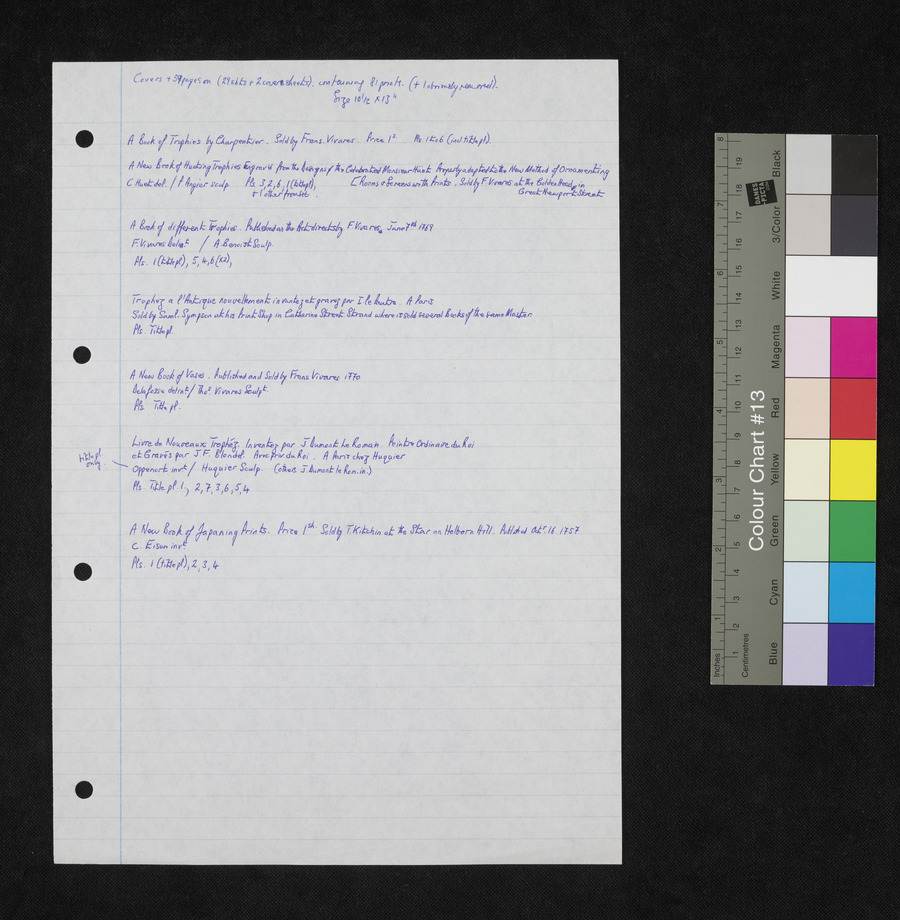 Covers + 59 pages on (29 shts + 2 cover sheets). containing 81 prints. (+ 1 obviously removed).
Size 10 1/2 x 13"
A Book of Trophies by Charpentier. Sold by Frans. Vivares. Price 1s Pls 1 to 6 (incl titlepl).
A New Book of Hunting Trophies Engrav'd from the Designs of the Celebrated Monsieur Huet Properly adapted to the New Method of Ornamenting
C. Huet del. / P. Angier sculp. Pls. 3, 2, 6, 1 (titlepl), [Rooms & Screens with Prints. Sold by F. Vivares at the Golden Head in
+ 1 other from set. Great Newport Street
A Book of different Trophies. Published as the Act directs by F. Vivares June 7th 1769
F. Vivares Delint / A. Benoist Sculp.
Pls. 1 (title pl), 5, 4, 6 (x2),
Trophez a l'Antique nouvellement inventez et gravez par I le Pautre. A Paris
Sold by Saml. Sympson at his Print Shop in Catharine Street Strand where is sold several Books of the same Master.
Pls. Title pl.
A New Book of Vases. Published and Sold by Frans Vivares 1770
Delafosse delint / Thos. Vivares Sculpt
Pls. Title pl.
Livre de Nouveaux Trophéz. Inventez par J Dumont Le Romain. Peintre Ordinaire du Roi
et Gravés par J. F. Blondel. Avec Priv du Roi. A Paris chez Huquier
title pl only. Oppenort invt / Huquier Sculp. (others J Dumont le Rom. in.)
Pls. Title pl. 1, 2, 7, 3, 6, 5, 4
A New Book of Japaning Prints. Price 1sh. Sold by T Kitchin at the Star on Holborn Hill. Published Octr. 16 1757
C. Eisen invt
Pls. 1 (title pl), 2, 3, 4
Colour Chart #13
DANES
-PICTA
.COM
Black
3/Color
White
Magenta
Red
Yellow
Green
Cyan
Blue
Inches
1 2 3 4 5 6 7 8
Centimetres
1 2 3 4 5 6 7 8 9 10 11 12 13 14 15 16 17 18 19